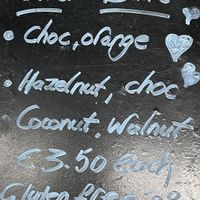 • choc, orange
• Hazelnut, choc
• Coconut, Walnut
€3.50 each
Gluten free